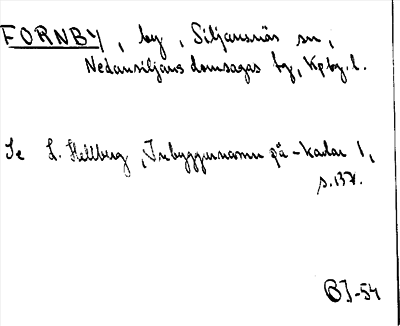 FORNBY, by, Siljansnäs sn,
Nedansiljans domsagas by, Kpbg. l.
Se L. Hellberg, Inbyggarnamn på -karlar 1,
s. 137.
BJ-54